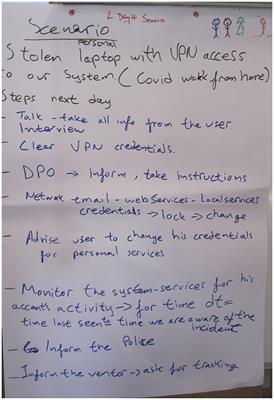 L. Day 4 Scenario
Scenario
personal
Stolen laptop with VPN access
to our System. (Covid work from home)
Steps next day
- Talk - take all info from the user.
Interview
- Clear VPN credentials.
- DPO → Inform, take instructions
- Network - email - webservices - localservices
credentials → lock → change
- Advise user to change his credentials
for personal services
- Monitor the system-services for his
accounts activity → for time dt =
time last seen to time we are aware of the
incident
- Inform the Police
- Inform the vendor → ask for tracking